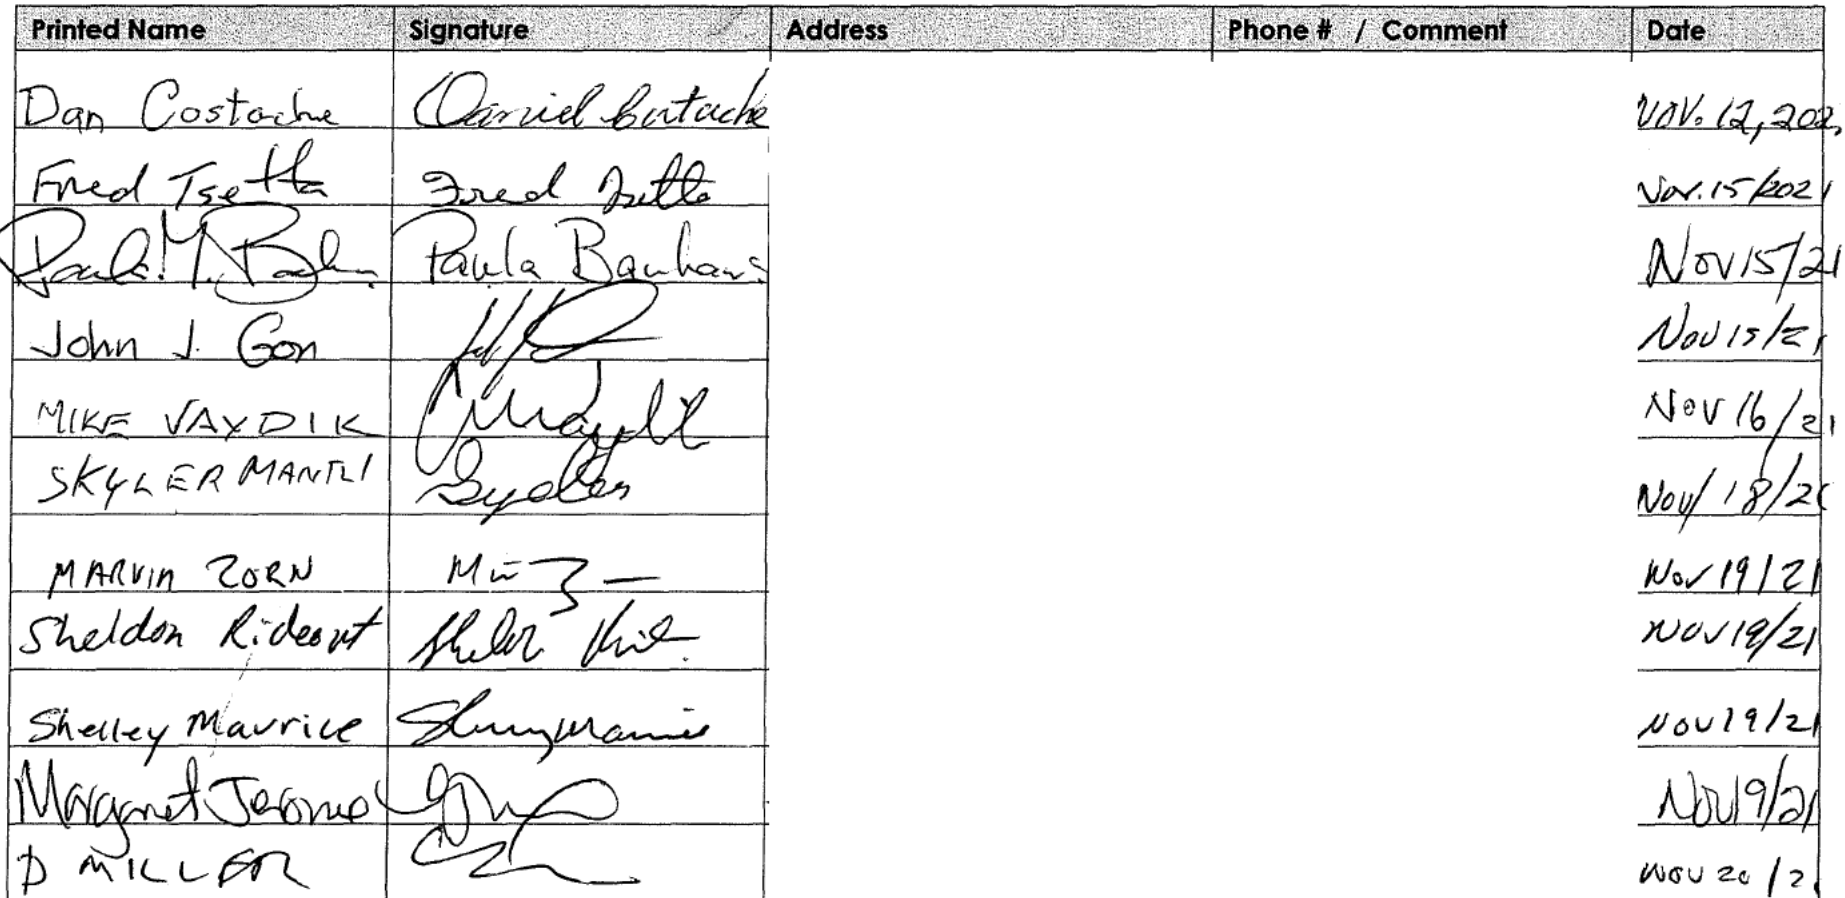 Printed Name Signature Address Phone # / Comment Date
Dan Costache Daniel Costache Nov. 12, 202
Fred Tsetta Fred Tsetta Nov. 15/2021
Paula M. Paula Banhani Nov 15/21
John J. Gon Nov 15/21
MIKE VAYDIK Nov 16/21
SKYLER MANTLI Nov/18/21
MARVIN ZORN Nov 19/21
Sheldon Rideout Nov 19/21
Shelley Maurice Nov 19/21
Margaret Jerome Nov 19/21
D MILLER Nov 20/21